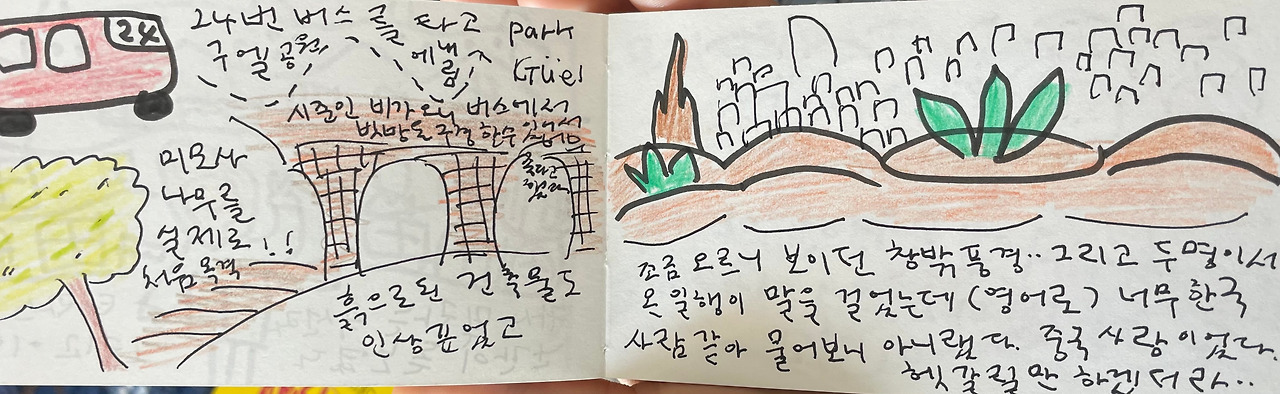 24
24번 버스를 타고
구엘공원
에 내림
Park
Güel
시준인 비가오니 버스에서
빗방울 구경 할수 있어서
좋다고
했다
미모사
나무를
실제로!!
처음 목격
흙으로된 건축물도
인상 깊었고
조금 오르니 보이던 창밖풍경.. 그리고 두명이서
온 일행이 말을 걸었는데 (영어로) 너무 한국
사람 같아 물어보니 아니랬다. 중국 사람이었다.
헷갈릴만 하겠더라..